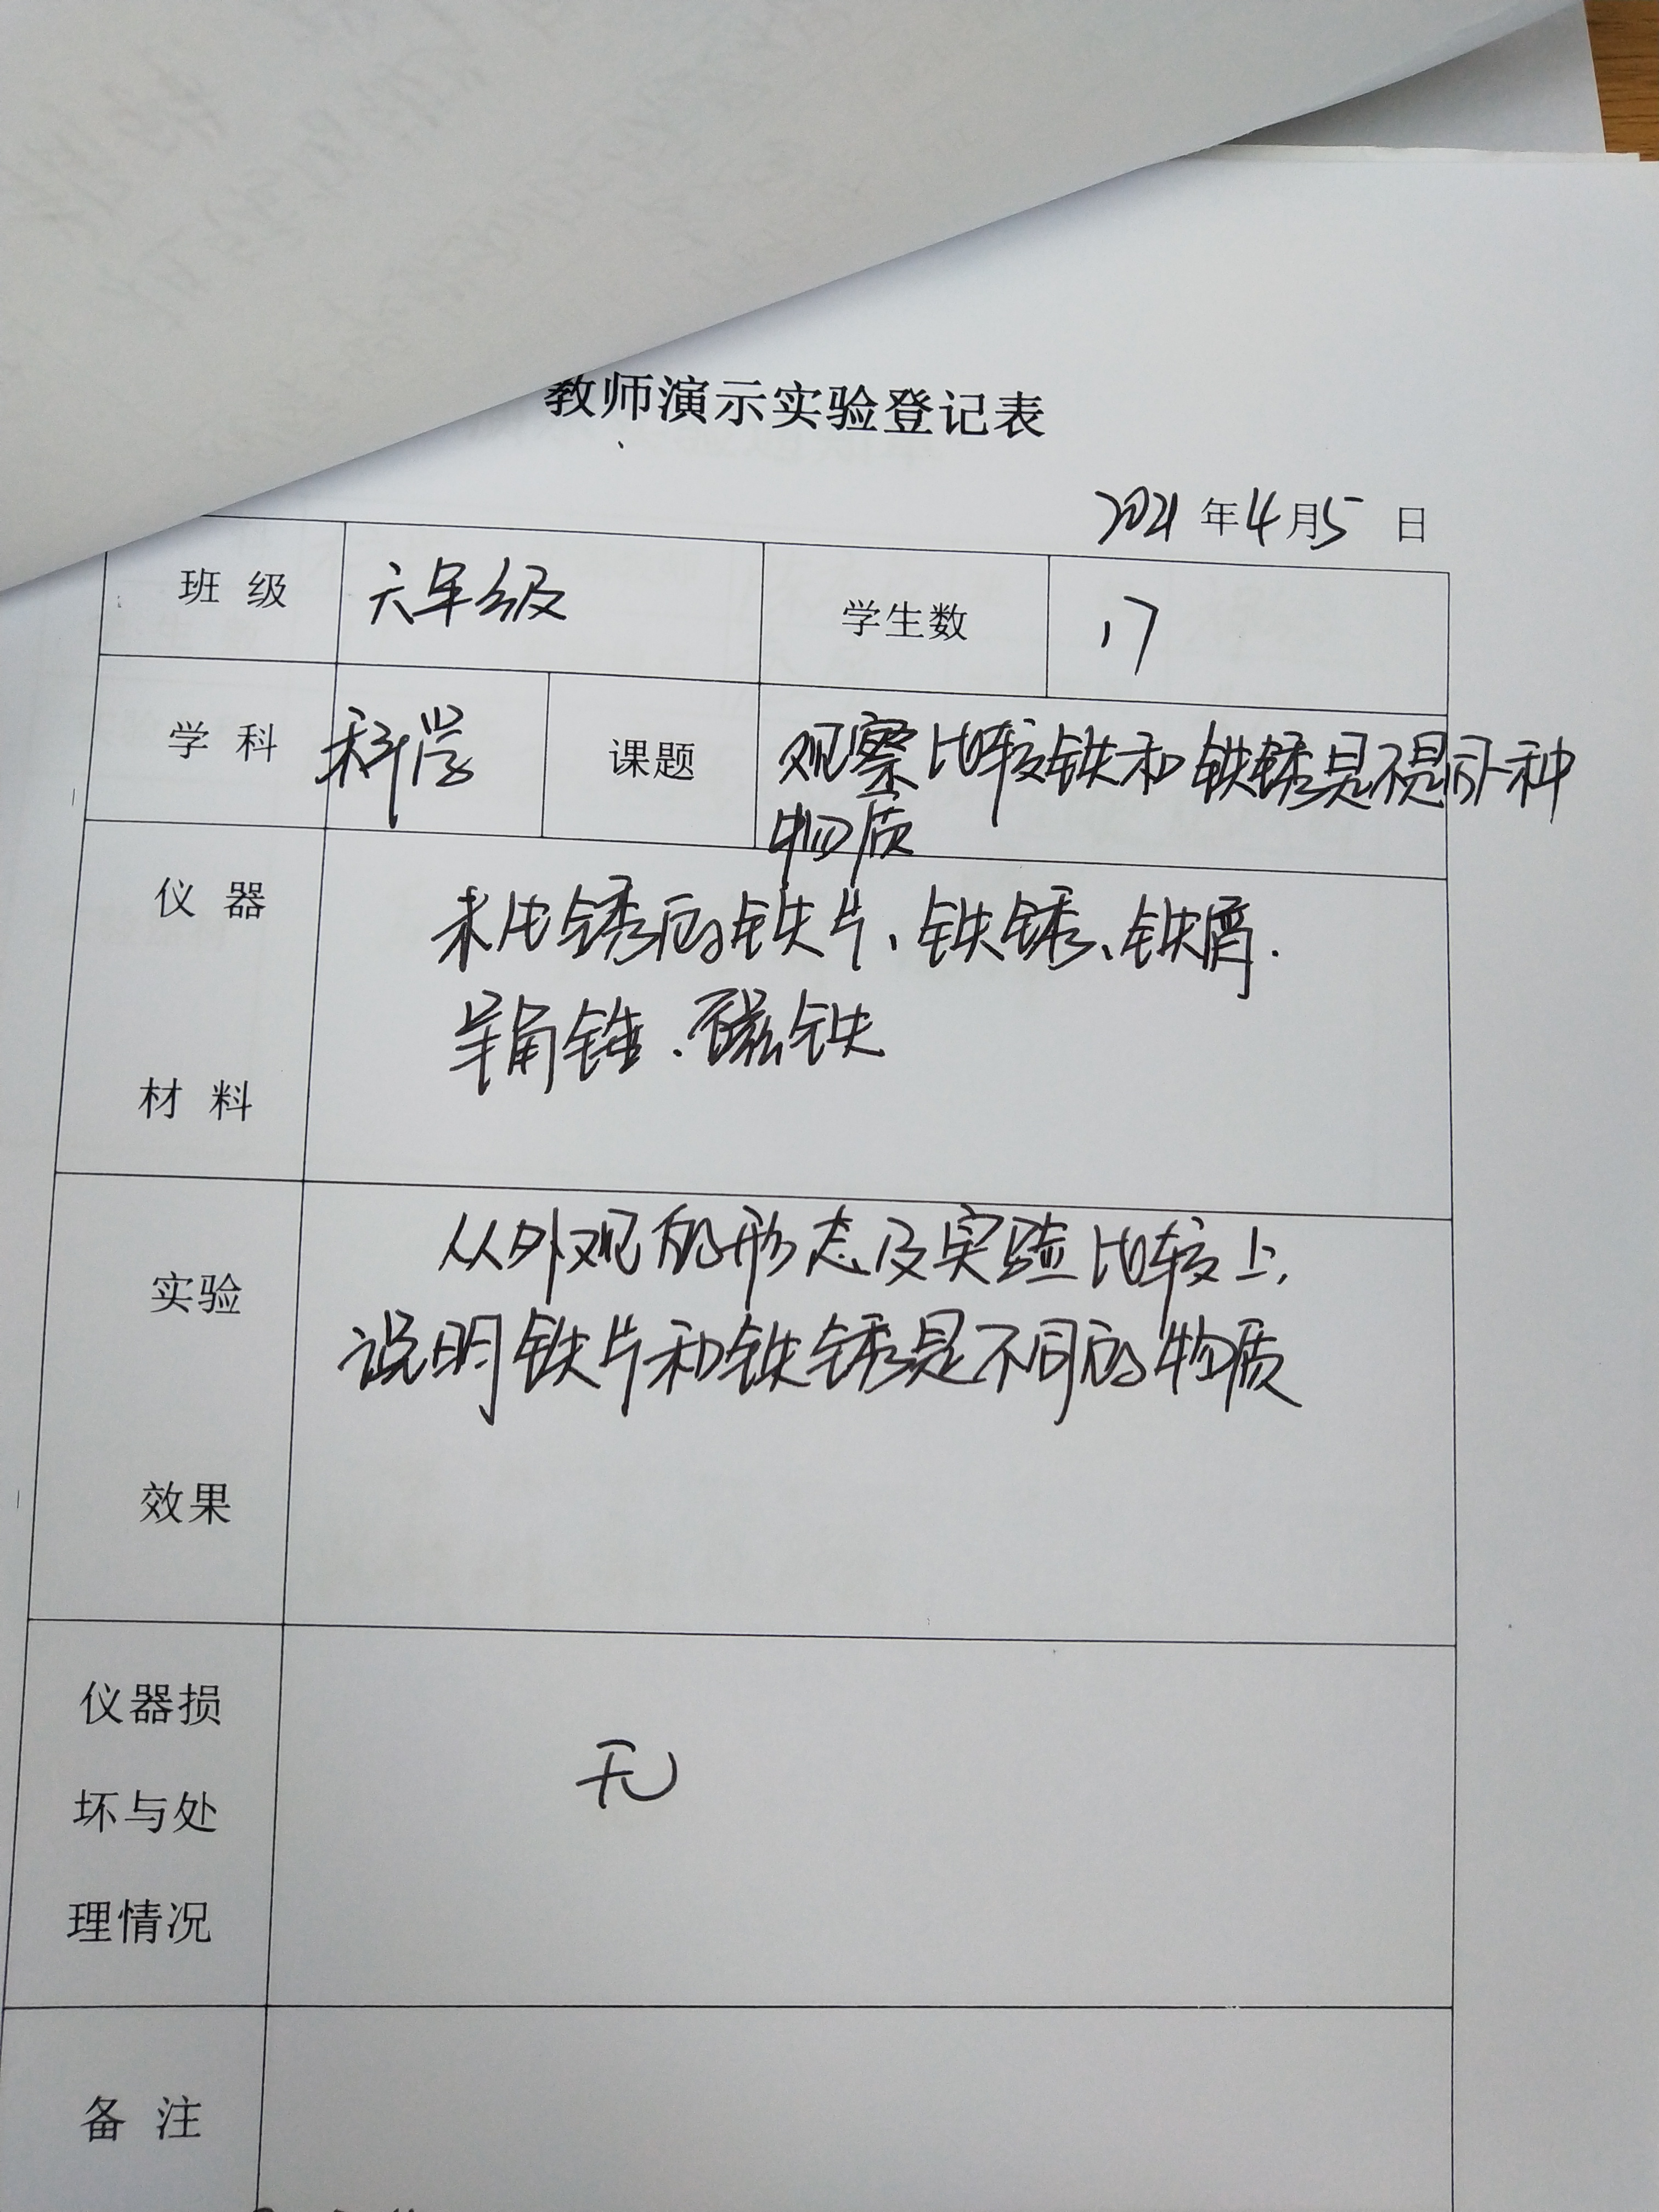 教师演示实验登记表
2021 年 4 月 5 日
班 级 六年级 学生数 17
学 科 科学 课题 观察比较铁和铁锈是不是同一种
物质
仪 器
未生锈的铁片、铁锈、铁屑.
羊角锤、磁铁
材 料
从外观的形态及实验比较上,
实验
说明铁片和铁锈是不同的物质
效果
仪器损
坏与处
理情况
无
备 注